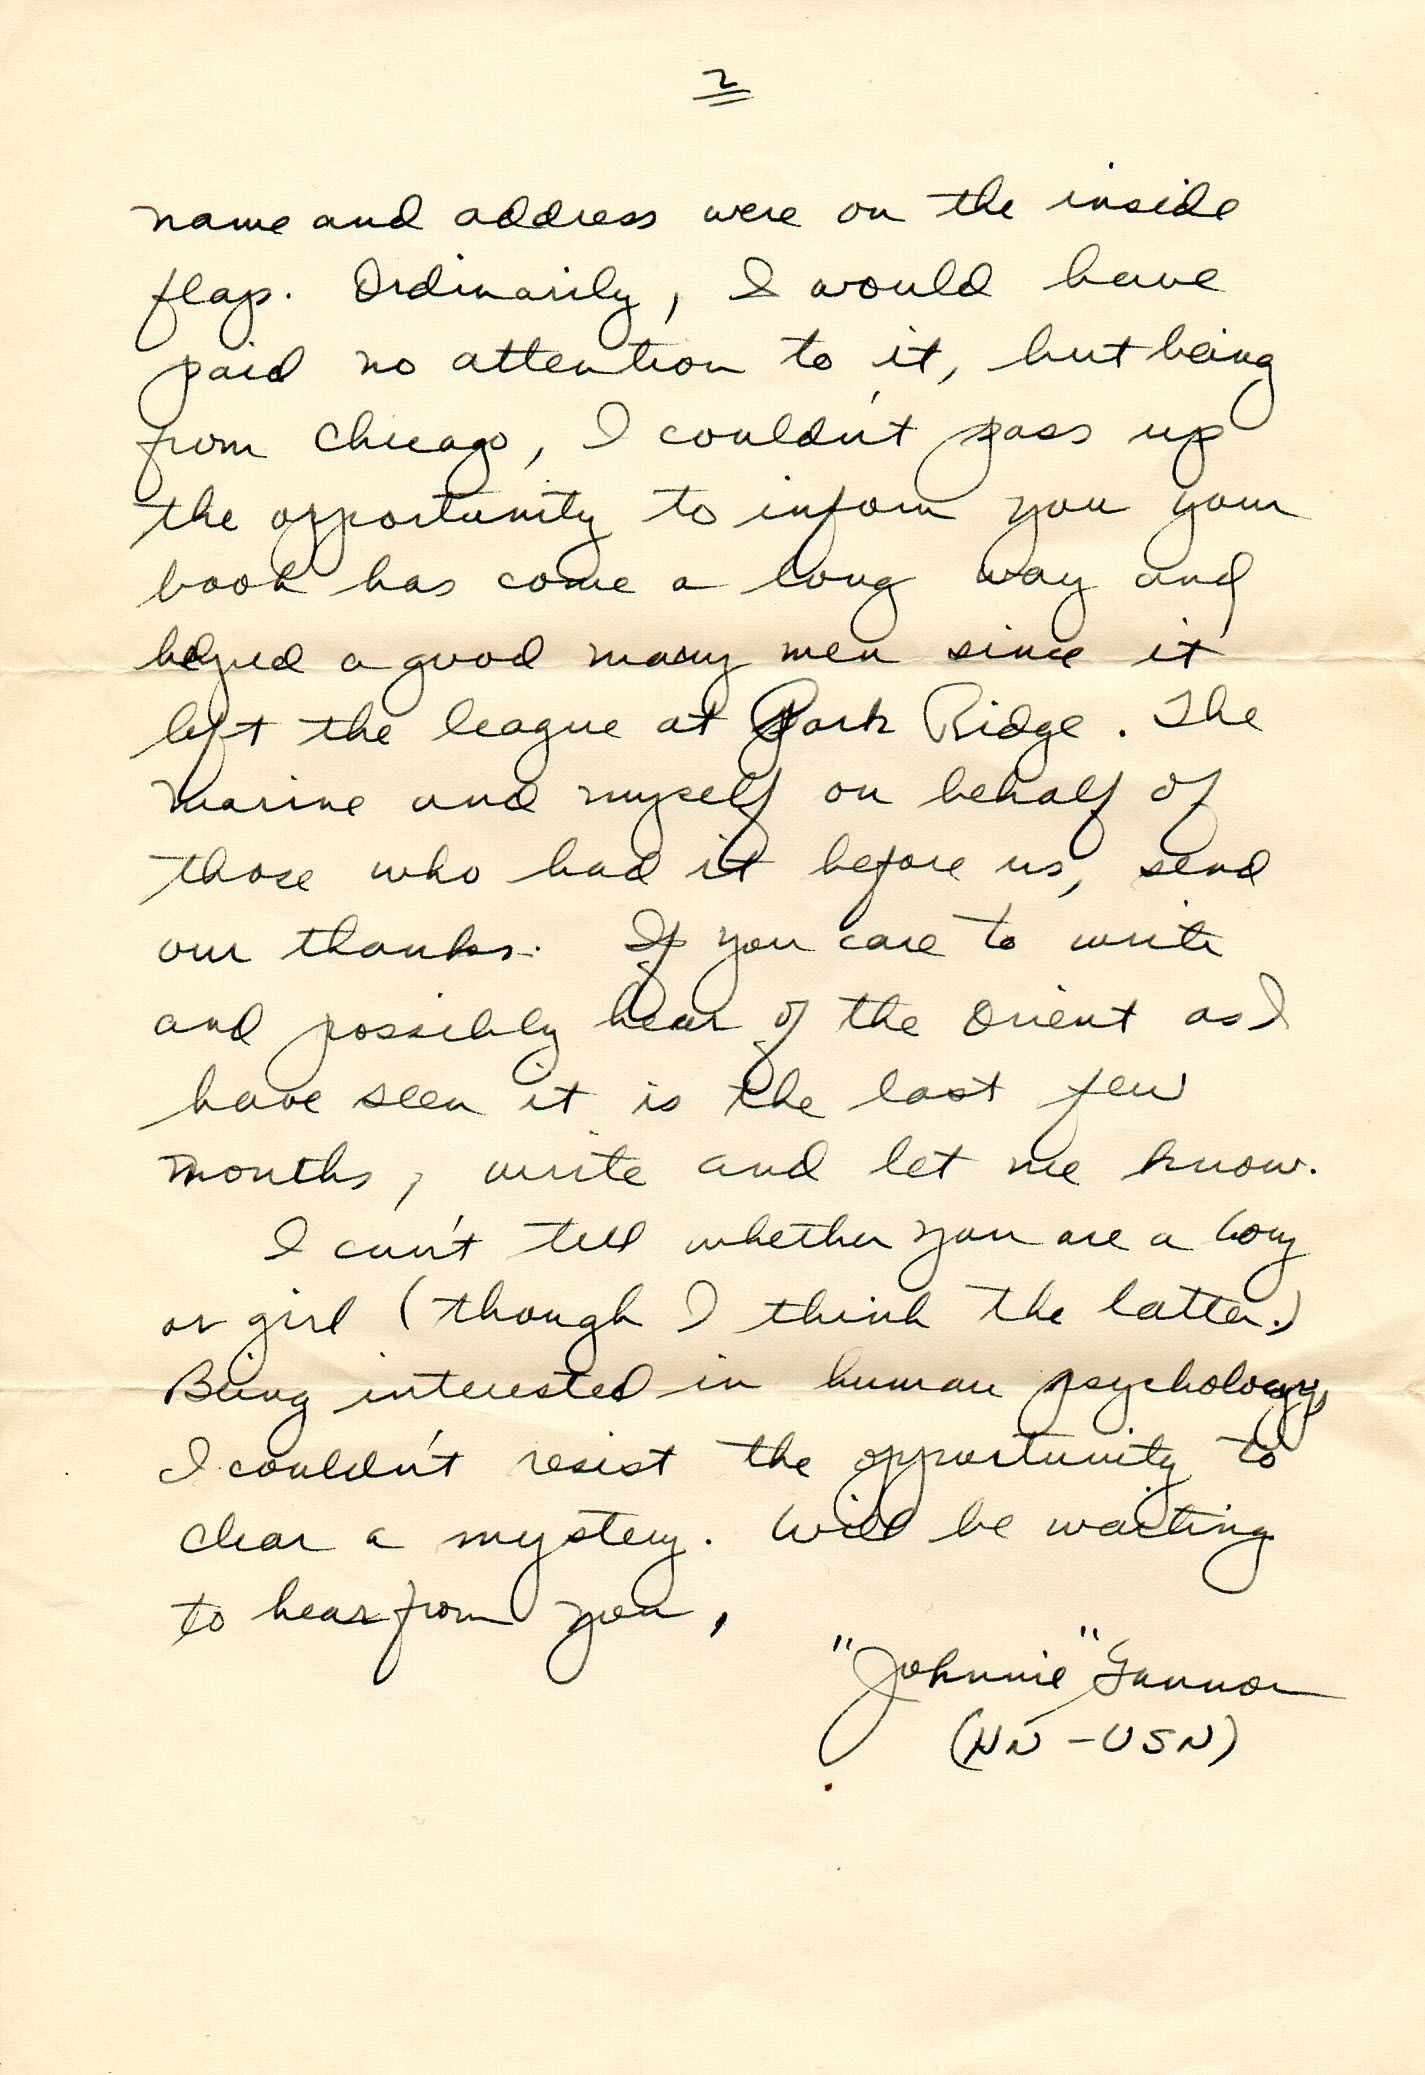 2
name and address were on the inside
flap. Ordinarily, I would have
paid no attention to it, but being
from Chicago, I couldn't pass up
the opportunity to inform you your
book has come a long way and
helped a good many men since it
left the league at Park Ridge. The
marine and myself on behalf of
those who had it before us, send
our thanks. If you care to write
and possibly hear of the Orient as I
have seen it is the last few
months, write and let me know.
I can't tell whether you are a boy
or girl (though I think the latter.)
Being interested in human psychology,
I couldn't resist the opportunity to
clear a mystery. Will be waiting
to hear from you,
"Johnnie" Gannon
(HN - USN)